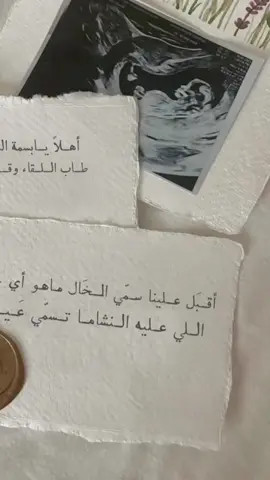 أهلاً يابسمة
طاب اللقاء
أقبَل علينا سمّي الخَال ماهو أي
اللي عليه النشاما تسمّي